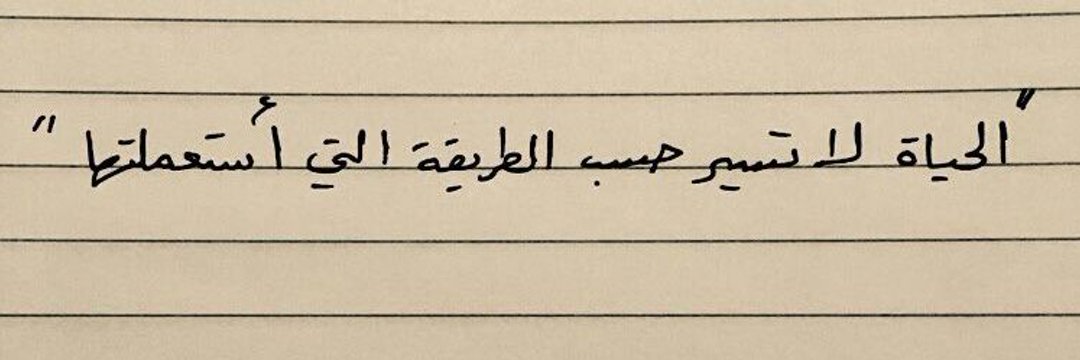 "الحياة لا تسير حسب الطريقة التي أستعملتها"